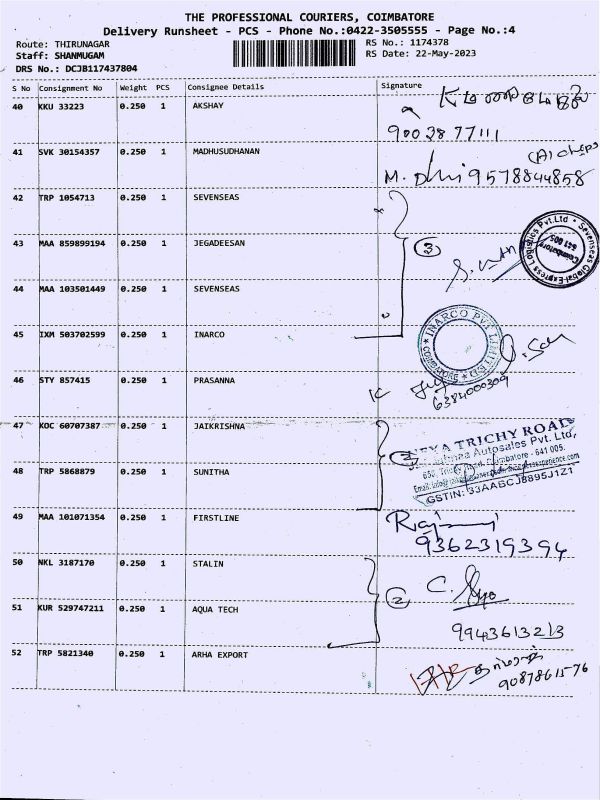 THE PROFESSIONAL COURIERS, COIMBATORE
Delivery Runsheet - PCS - Phone No.:0422-3505555 - Page No.:4
Route: THIRUNAGAR
RS No.: 1174378
Staff: SHANMUGAM
RS Date: 22-May-2023
DRS No.: DCJB117437804
S No Consignment No Weight PCS Consignee Details Signature
40 KKU 33223 0.250 1 AKSHAY
9003877111
41 SVK 30154357 0.250 1 MADHUSUDHANAN
M. 9578844858
42 TRP 1054713 0.250 1 SEVENSEAS
43 MAA 859899194 0.250 1 JEGADEESAN
3
Sevenseas Global Express Logistics Pvt.Ltd
Coimbatore
641 005
44 MAA 103501449 0.250 1 SEVENSEAS
45 IXM 503702599 0.250 1 INARCO
INARCO PVT LIMITED
COIMBATORE
46 STY 857415 0.250 1 PRASANNA
6384000309
47 KOC 60707387 0.250 1 JAIKRISHNA
TRICHY ROAD
Autosales Pvt. Ltd,
Coimbatore - 641 005.
48 TRP 5868879 0.250 1 SUNITHA
GSTIN: 33AABCJ8895J1Z1
49 MAA 101071354 0.250 1 FIRSTLINE
9362319394
50 NKL 3187170 0.250 1 STALIN
2
C.
51 KUR 529747211 0.250 1 AQUA TECH
9943613213
52 TRP 5821340 0.250 1 ARHA EXPORT
9087861576